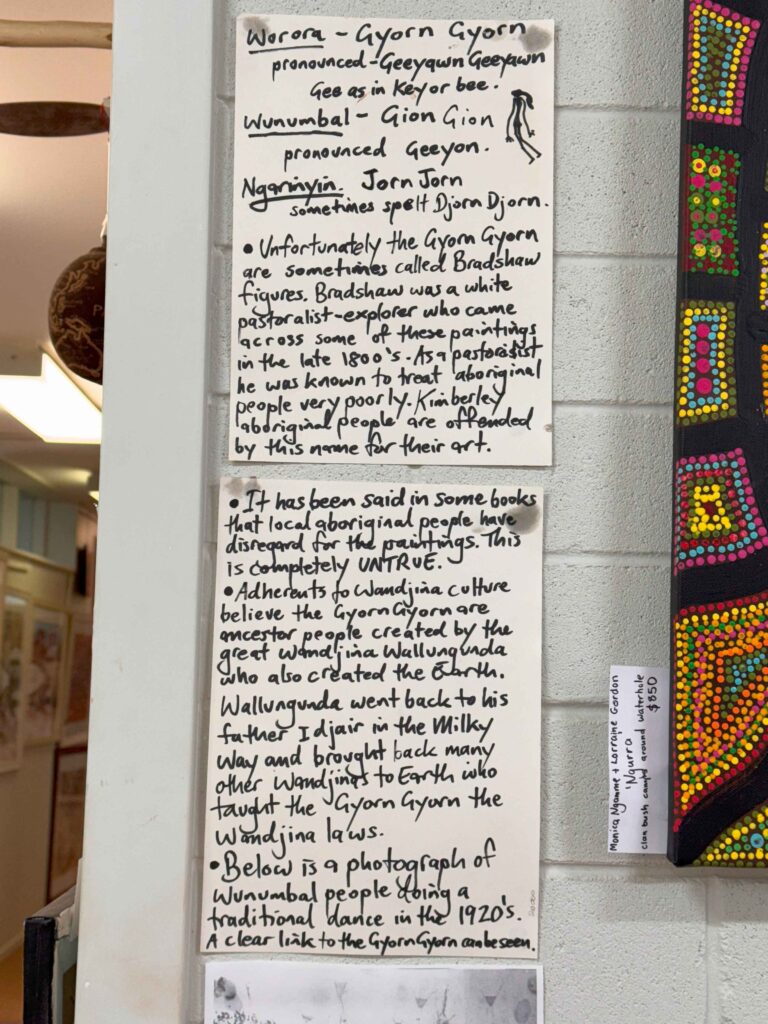 Worora - Gyorn Gyorn
pronounced - Geeyawn Geeyawn
Gee as in key or bee.
Wunumbal - Gion Gion
pronounced Geeyon.
Ngarinyin. Jorn Jorn
sometimes spelt Djorn Djorn.
• Unfortunately the Gyorn Gyorn
are sometimes called Bradshaw
figures. Bradshaw was a white
pastoralist-explorer who came
across some of these paintings
in the late 1800's. As a pastoralist
he was known to treat aboriginal
people very poorly. Kimberley
aboriginal people are offended
by this name for their art.
• It has been said in some books
that local aboriginal people have
disregard for the paintings. This
is completely UNTRUE.
• Adherents to Wandjina culture
believe the Gyorn Gyorn are
ancestor people created by the
great Wandjina Wallungunda
who also created the Earth.
Wallungunda went back to his
father Idjair in the Milky
Way and brought back many
other Wandjinas to Earth who
taught the Gyorn Gyorn the
Wandjina laws.
• Below is a photograph of
Wunumbal people doing a
traditional dance in the 1920's.
A clear link to the Gyorn Gyorn can be seen.
Monica Ngamme + Lorraine Gordon
'Ngurra'
clan bush camps around waterhole
$850